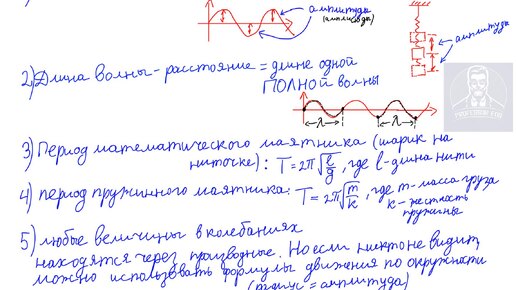 амплитуда
(амплисюда)
амплитуда
2) Длина волны - расстояние = длине одной
ПОЛНОЙ волны
λ λ
3) Период математического маятника (шарик на
ниточке): T = 2π√(l/g), где l - длина нити
4) период пружинного маятника: T = 2π√(m/k), где m - масса груза
k - жесткость
пружины
5) любые величины в колебаниях
находятся через производные. Но если никто не видит,
можно использовать формулы движения по окружности
(радиус = амплитуда)